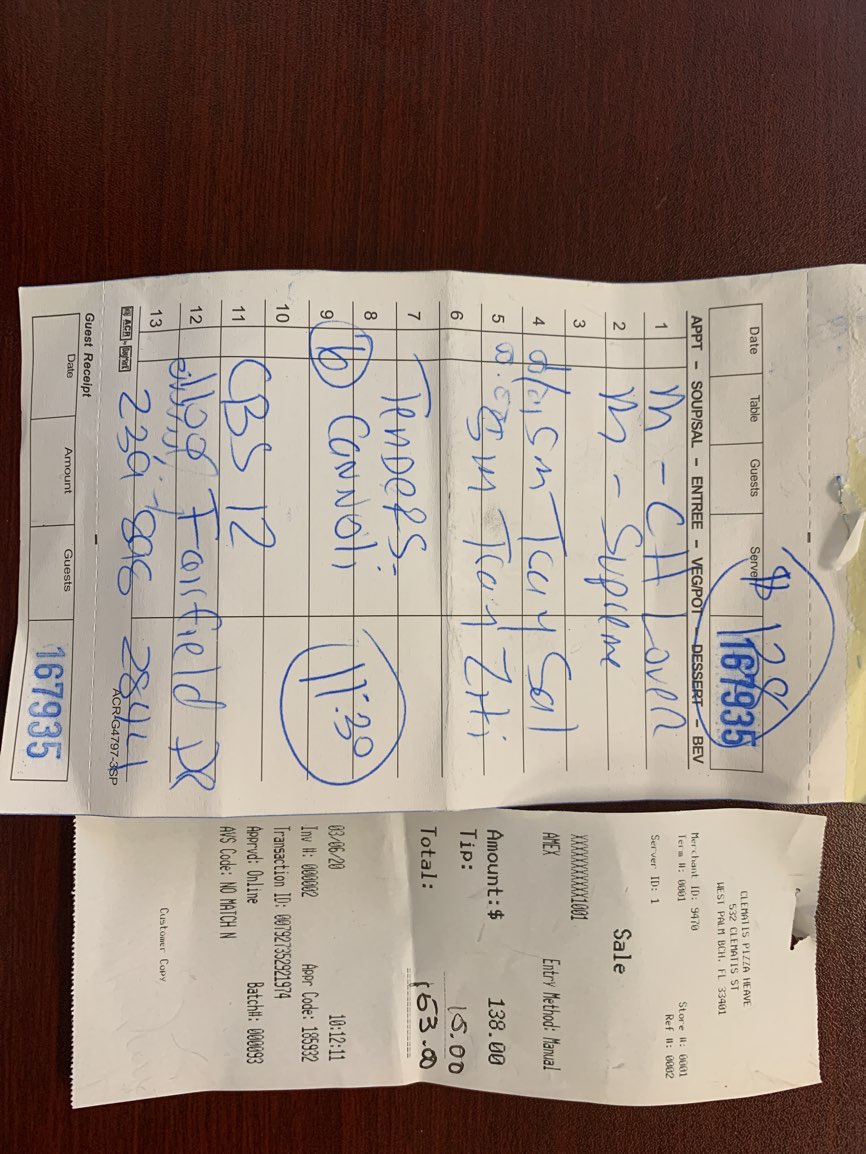 Date Table Guests Server
$ 128
167935
APPT – SOUP/SAL – ENTREE – VEG/POT – DESSERT – BEV
1 M - CH Lover
2 M - Supreme
3
4 Sm Tray Sal
5 Sm Tray Ziti
6
7 Tenders -
8
9 6 Cannoli 11:30
10
11 CBS 12
12 Fairfield DR
13 239 2844
ACR-G4797-3SP
Guest Receipt
Date Amount Guests
167935
CLEMATIS PIZZA HEAVE
532 CLEMATIS ST
WEST PALM BCH, FL 33401
Merchant ID: 9470
Term #: 0001 Store #: 0001
Server ID: 1 Ref #: 0002
Sale
XXXXXXXXXXX1001
AMEX Entry Method: Manual
Amount:$ 138.00
Tip: 15.00
Total: 153.00
03/06/20 10:12:11
Inv #: 000002 Appr Code: 185932
Transaction ID: 007927352921974
Apprvd: Online Batch#: 000093
AVS Code: NO MATCH N
Customer Copy